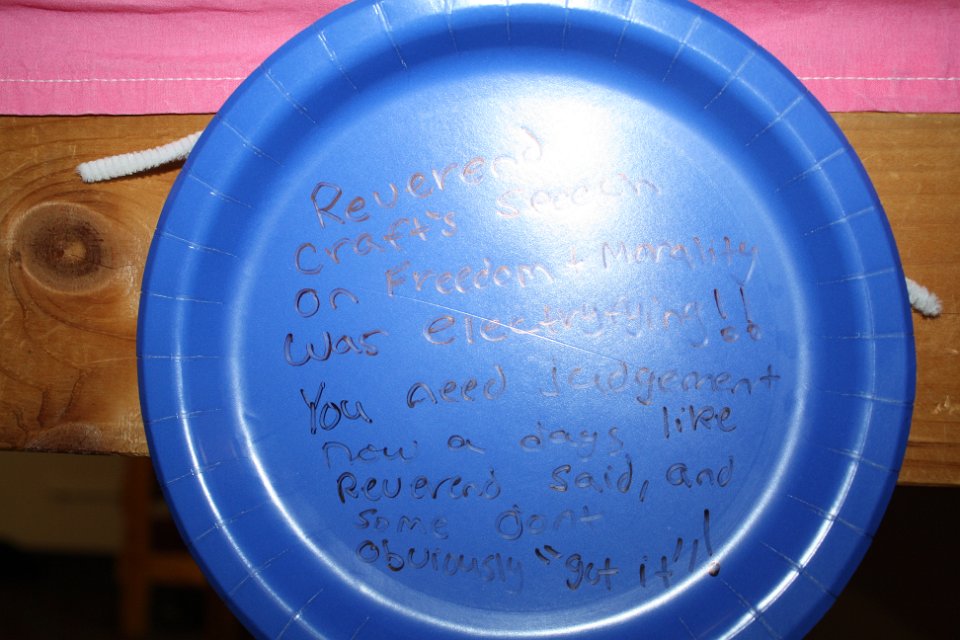 Reverend
Craft's speech
on Freedom + Morality
was electryfying!!
You need judgement
now a days like
Reverend said, and
some dont
obviously "got it"!!